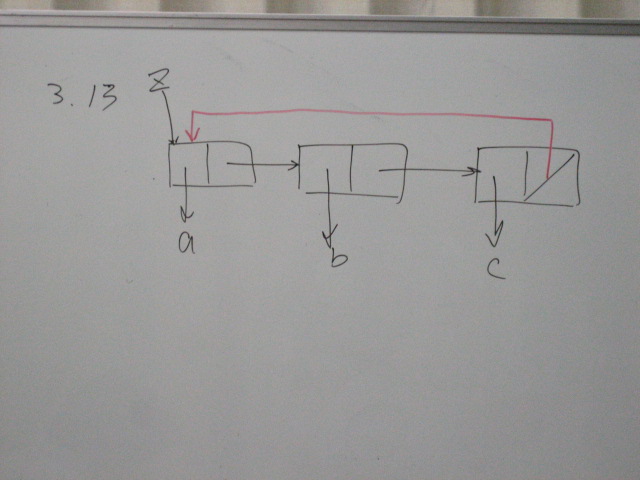 3.13 z
a
b
c